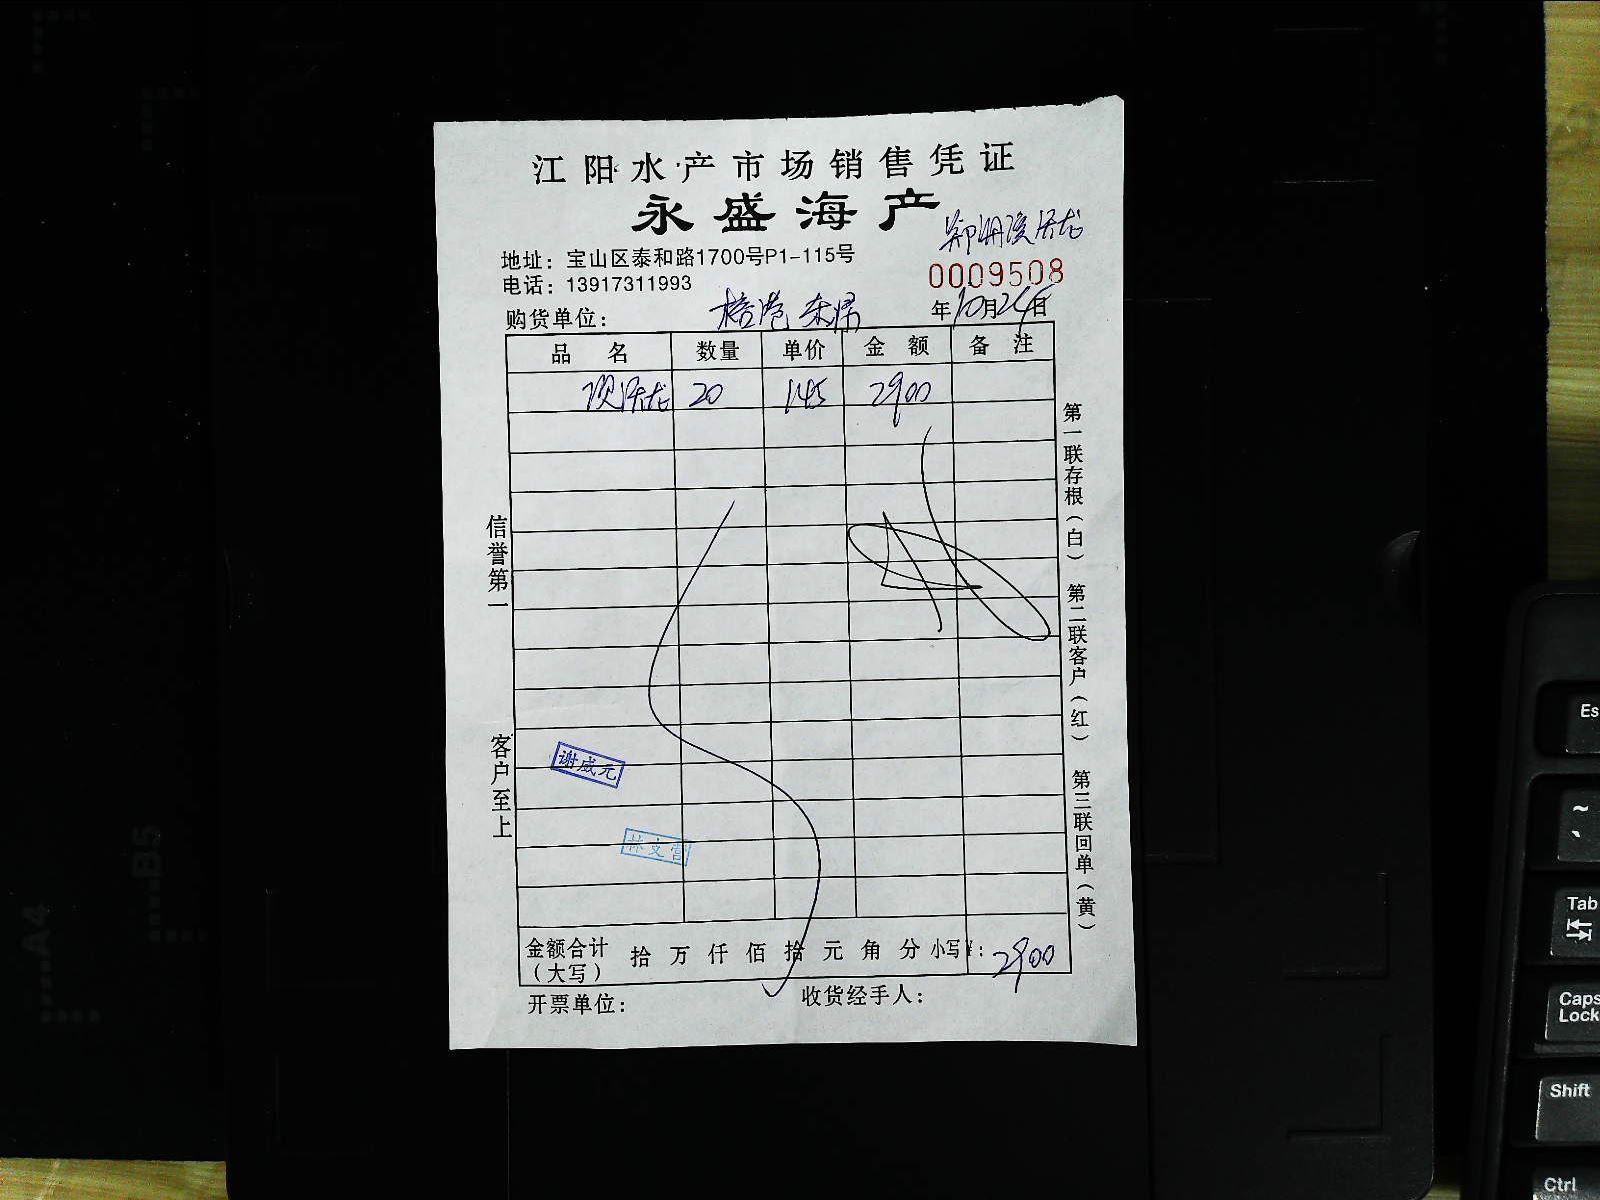 江阳水产市场销售凭证
永盛海产
地址：宝山区泰和路1700号P1-115号
0009508
电话：13917311993
购货单位：
年10月24日
品名 数量 单价 金额 备注
20 145 2900
信誉第一
客户至上
第一联存根（白）
第二联客户（红）
第三联回单（黄）
谢成元
林文营
金额合计（大写） 拾万仟佰拾元角分 小写¥：2900
开票单位：
收货经手人：
B5
A4
Es
~
`
Tab
Caps Lock
Shift
Ctrl